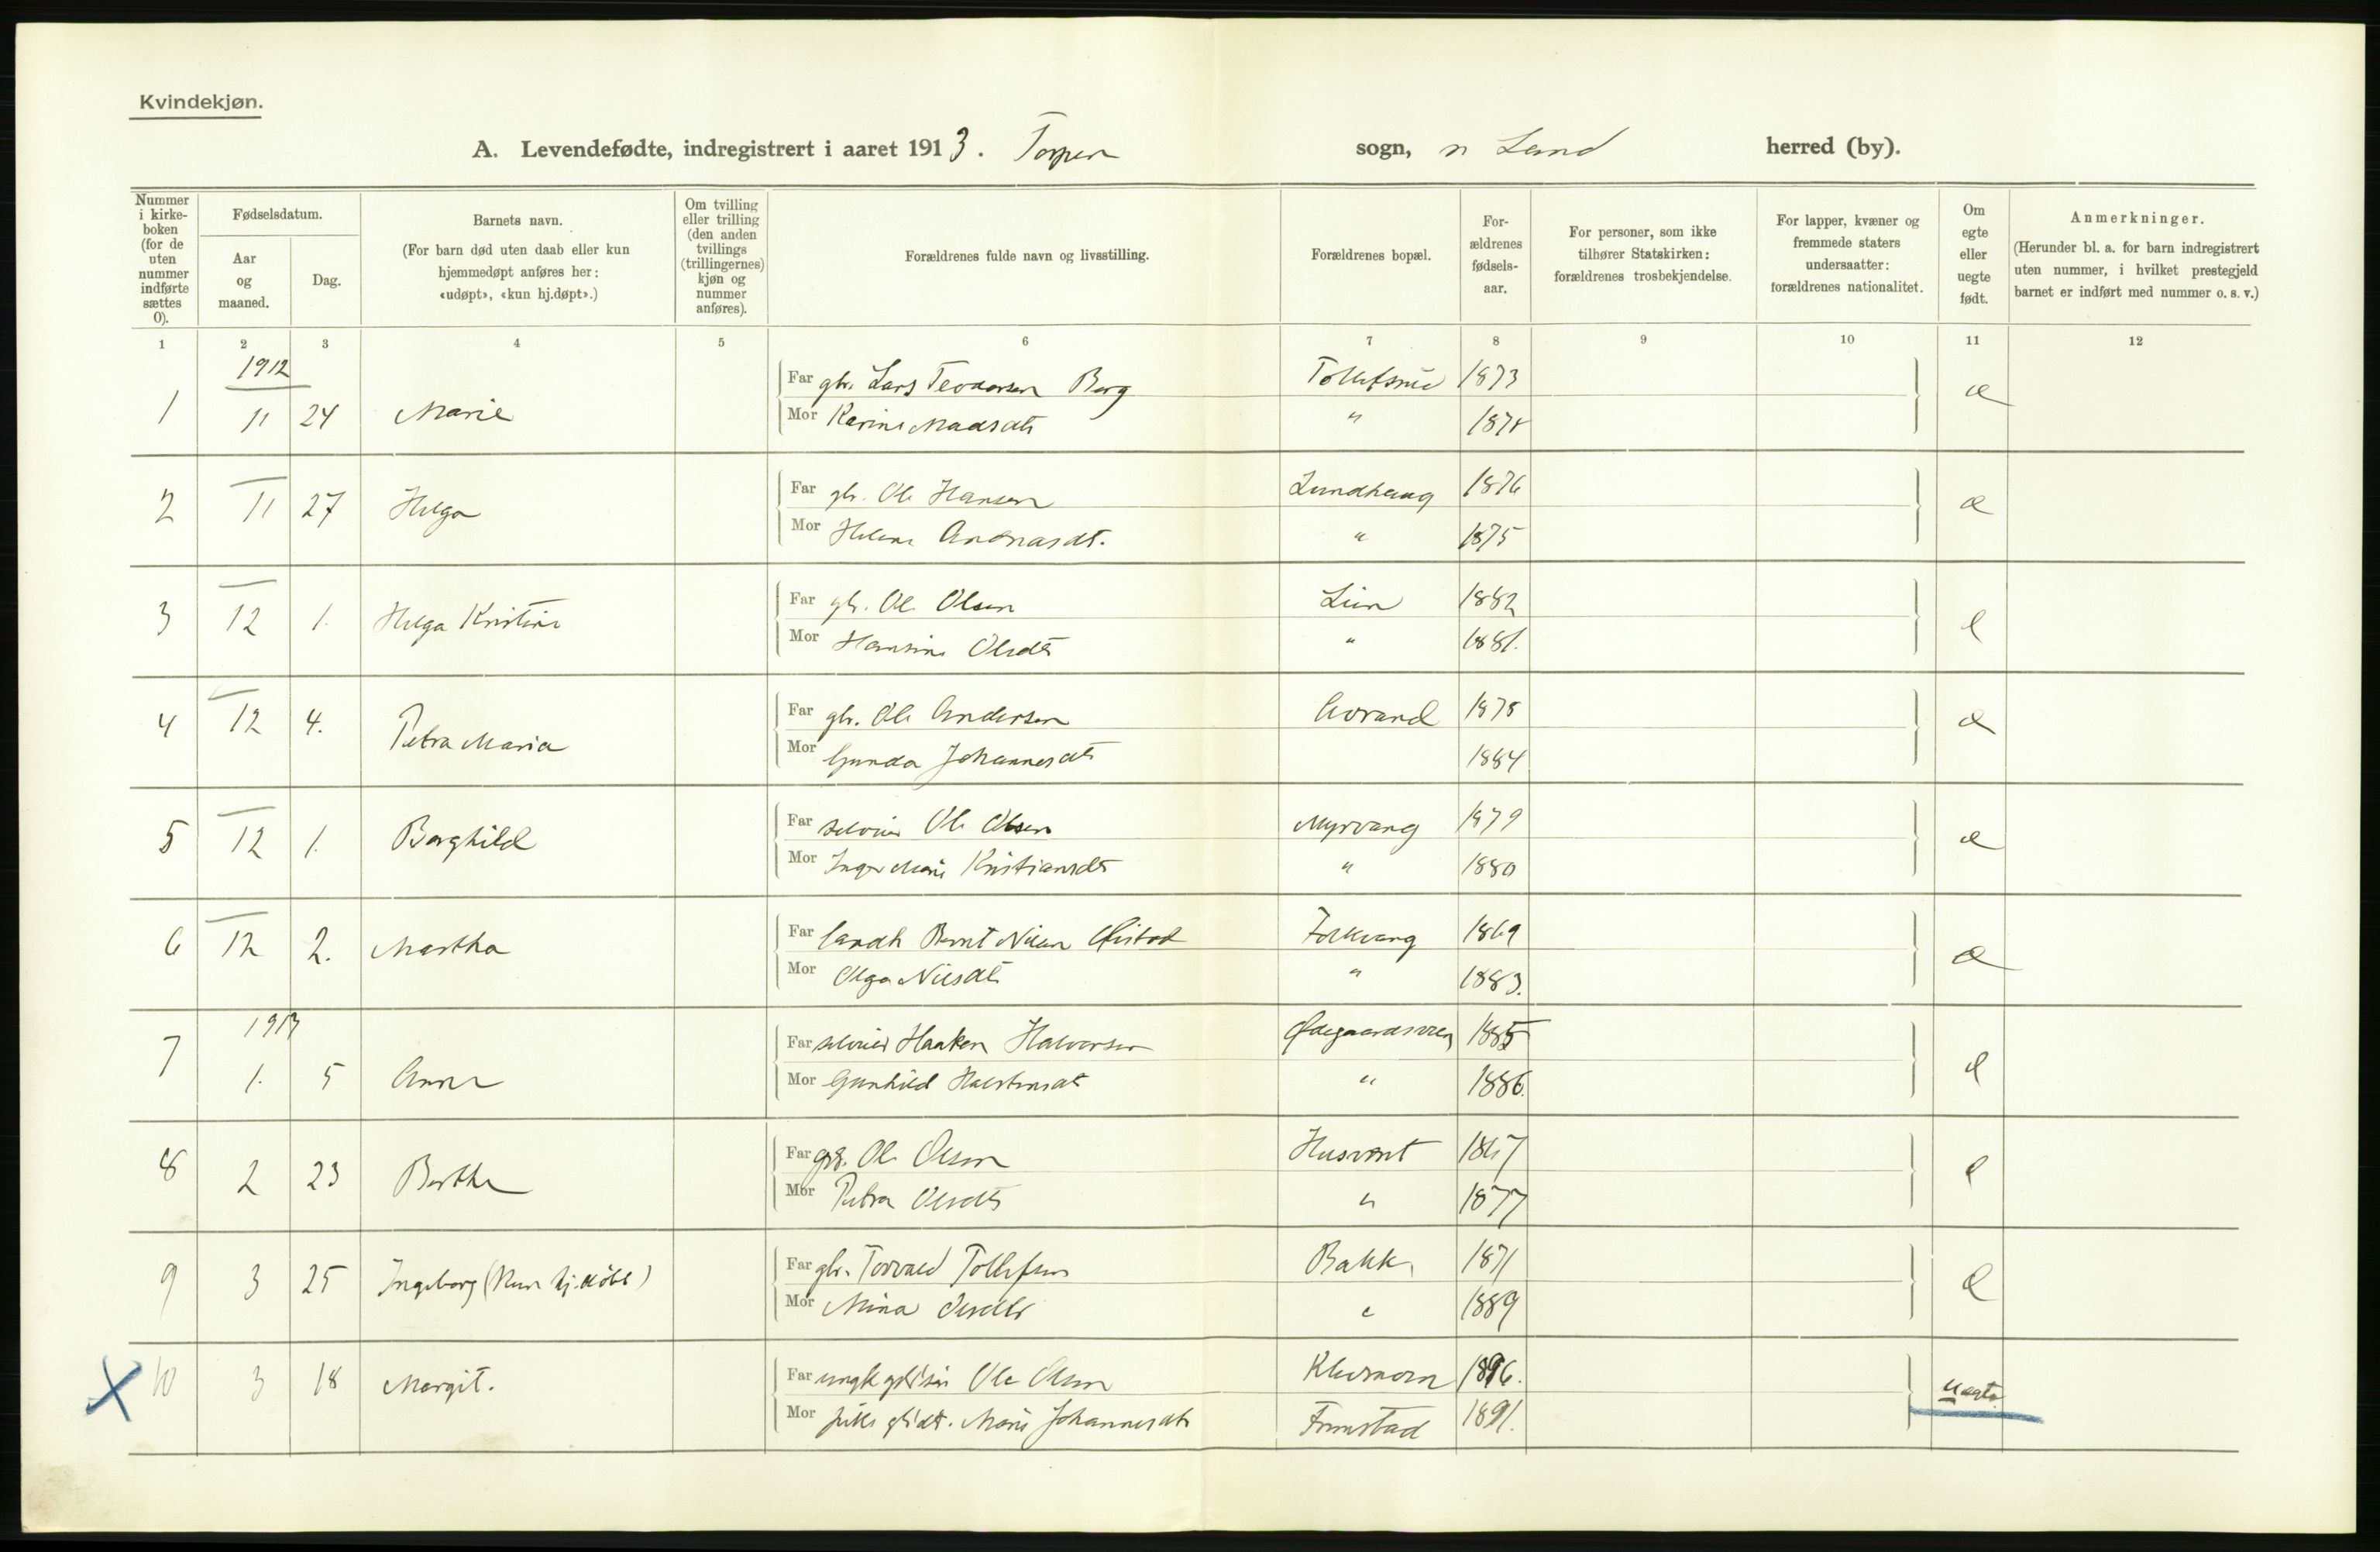 Kvindekjøn.
A. Levendefødte, indregistrert i aaret 1913. Torpen sogn, n Land herred (by).
Nummer i kirkeboken (for de uten nummer indførte sættes 0).
Fødselsdatum.
Aar og maaned.
Dag.
Barnets navn.
(For barn død uten daab eller kun hjemmedøpt anføres her: «udøpt», «kun hj.døpt».)
Om tvilling eller trilling (den anden tvillings (trillingernes) kjøn og nummer anføres).
Forældrenes fulde navn og livsstilling.
Forældrenes bopæl.
Forældrenes fødselsaar.
For personer, som ikke tilhører Statskirken: forældrenes trosbekjendelse.
For lapper, kvæner og fremmede staters undersaatter: forældrenes nationalitet.
Om egte eller uegte født.
Anmerkninger.
(Herunder bl. a. for barn indregistrert uten nummer, i hvilket prestegjeld barnet er indført med nummer o. s. v.)
1 2 3 4 5 6 7 8 9 10 11 12
1912
Far gbr. Lars Teodorsen Berg Tollefsrud 1873
1 11 24 Marie e
Mor Karine Madsdt " 187
Far gbr. Ole Hansen Lundhaug 1876
2 11 27 Helga e
Mor Helene Andreasdt. " 1875
Far gbr. Ole Olsen Lien 1882
3 12 1. Helga Kristine e
Mor Hansine Olsdt " 1881.
Far gbr. Ole Andersen 1875
4 12 4. Petra Maria e
Mor Gunda Johannesdt 1884
Far selveier Ole Olsen Myrvang 1879
5 12 1. Borghild e
Mor Inger Marie Kristiansdt " 1880
Far landh. Bernt Nilsen Folkvang 1869
6 12 2. Martha e
Mor Olga Nilsdt " 1883.
1913
Far selveier Haaken Halvorsen Ødegaardsvien 1885
7 1. 5 Anna e
Mor Gunhild " 1886.
Far Ole Olsen Husvært 1867
8 2 23 Berthe e
Mor Petra Olsdt " 1877
Far gbr. Torvald Tollefsen Bakk. 1871
9 3 25 Ingeborg (Kun hj.døbt) e
Mor Mina Olsdt " 1889
Far ungk. Ole Olsen Klevmoen 1896.
10 3 18 Margit. uegte
Mor pike Marie Johannesdt Fremstad 1891.